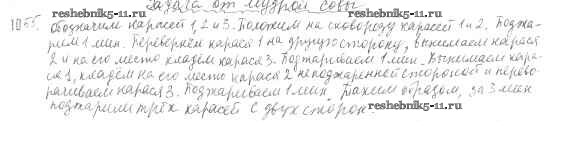 Задача от мудрой совы
1055. Обозначим карасей 1, 2 и 3. Положим на сковороду карасей 1 и 2. Поджа-
рим 1 мин. Перевернём карася 1 на другую сторону, вынимаем карася
2 и на его место кладём карася 3. Поджариваем 1 мин. Вынимаем кара-
ся 1, кладём на его место карася 2 неподжаренной стороной и перево-
рачиваем карася 3. Поджариваем 1 мин. Таким образом, за 3 мин
поджарили трёх карасей с двух сторон.
reshebnik5-11.ru
reshebnik5-11.ru
reshebnik5-11.ru
reshebnik5-11.ru